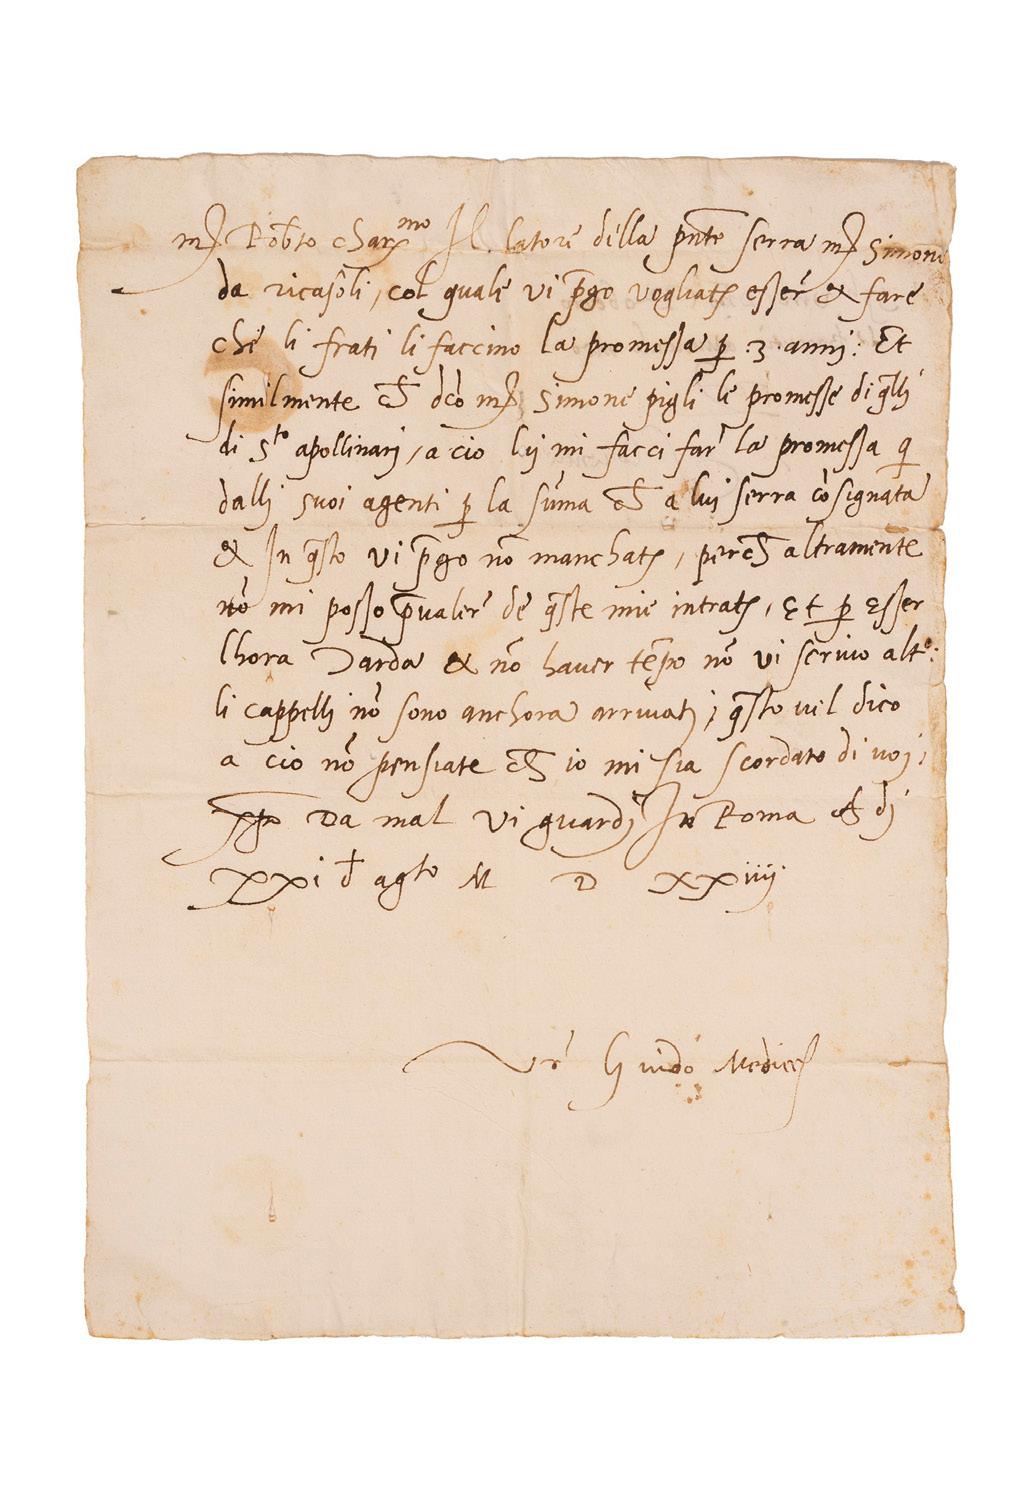 mͬ Robto charmo Il latore della pnte serra mͬ Simone
da ricasoli, col quale vi pgo vogliate esser & fare
che li frati li faccino la promessa p .3. anni: Et
similmente ch dco mͬ Simone pigli le promesse di qlli
di sto apollinari, a cio lui mi facci far la promessa q
dalli suoi agenti p la suma ch a lui serra cosignata
& In qsto vi pgo no manchate, perch altramente
no mi posso pvaler de qste mie intrate, Et p esser
lhora Tarda & no haver tepo no vi scrivo alto:
li cappelli no sono anchora arrivati, qsto vel dico
a cio no pensiate ch io mi sia scordato di voi,
xpo Da mal vi guardi In Roma alli dj
XXi d agto M D XXiiij.
Vr Guido Medices